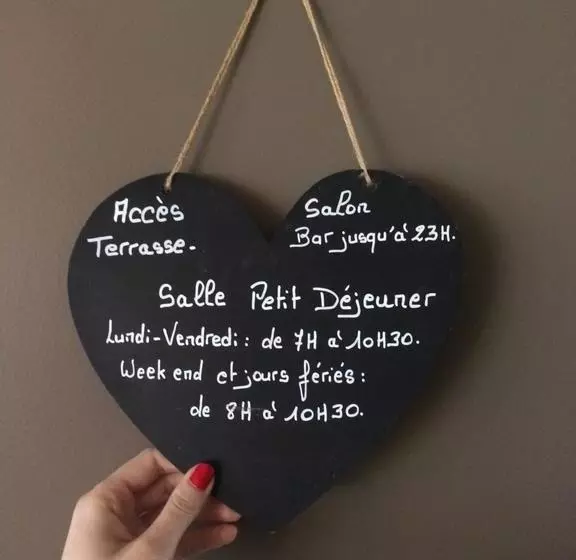 Accès
Terrasse.
Salon
Bar jusqu'à 23H.
Salle Petit Déjeuner
Lundi-Vendredi : de 7H à 10H30.
Week end et jours fériés :
de 8H à 10H30.